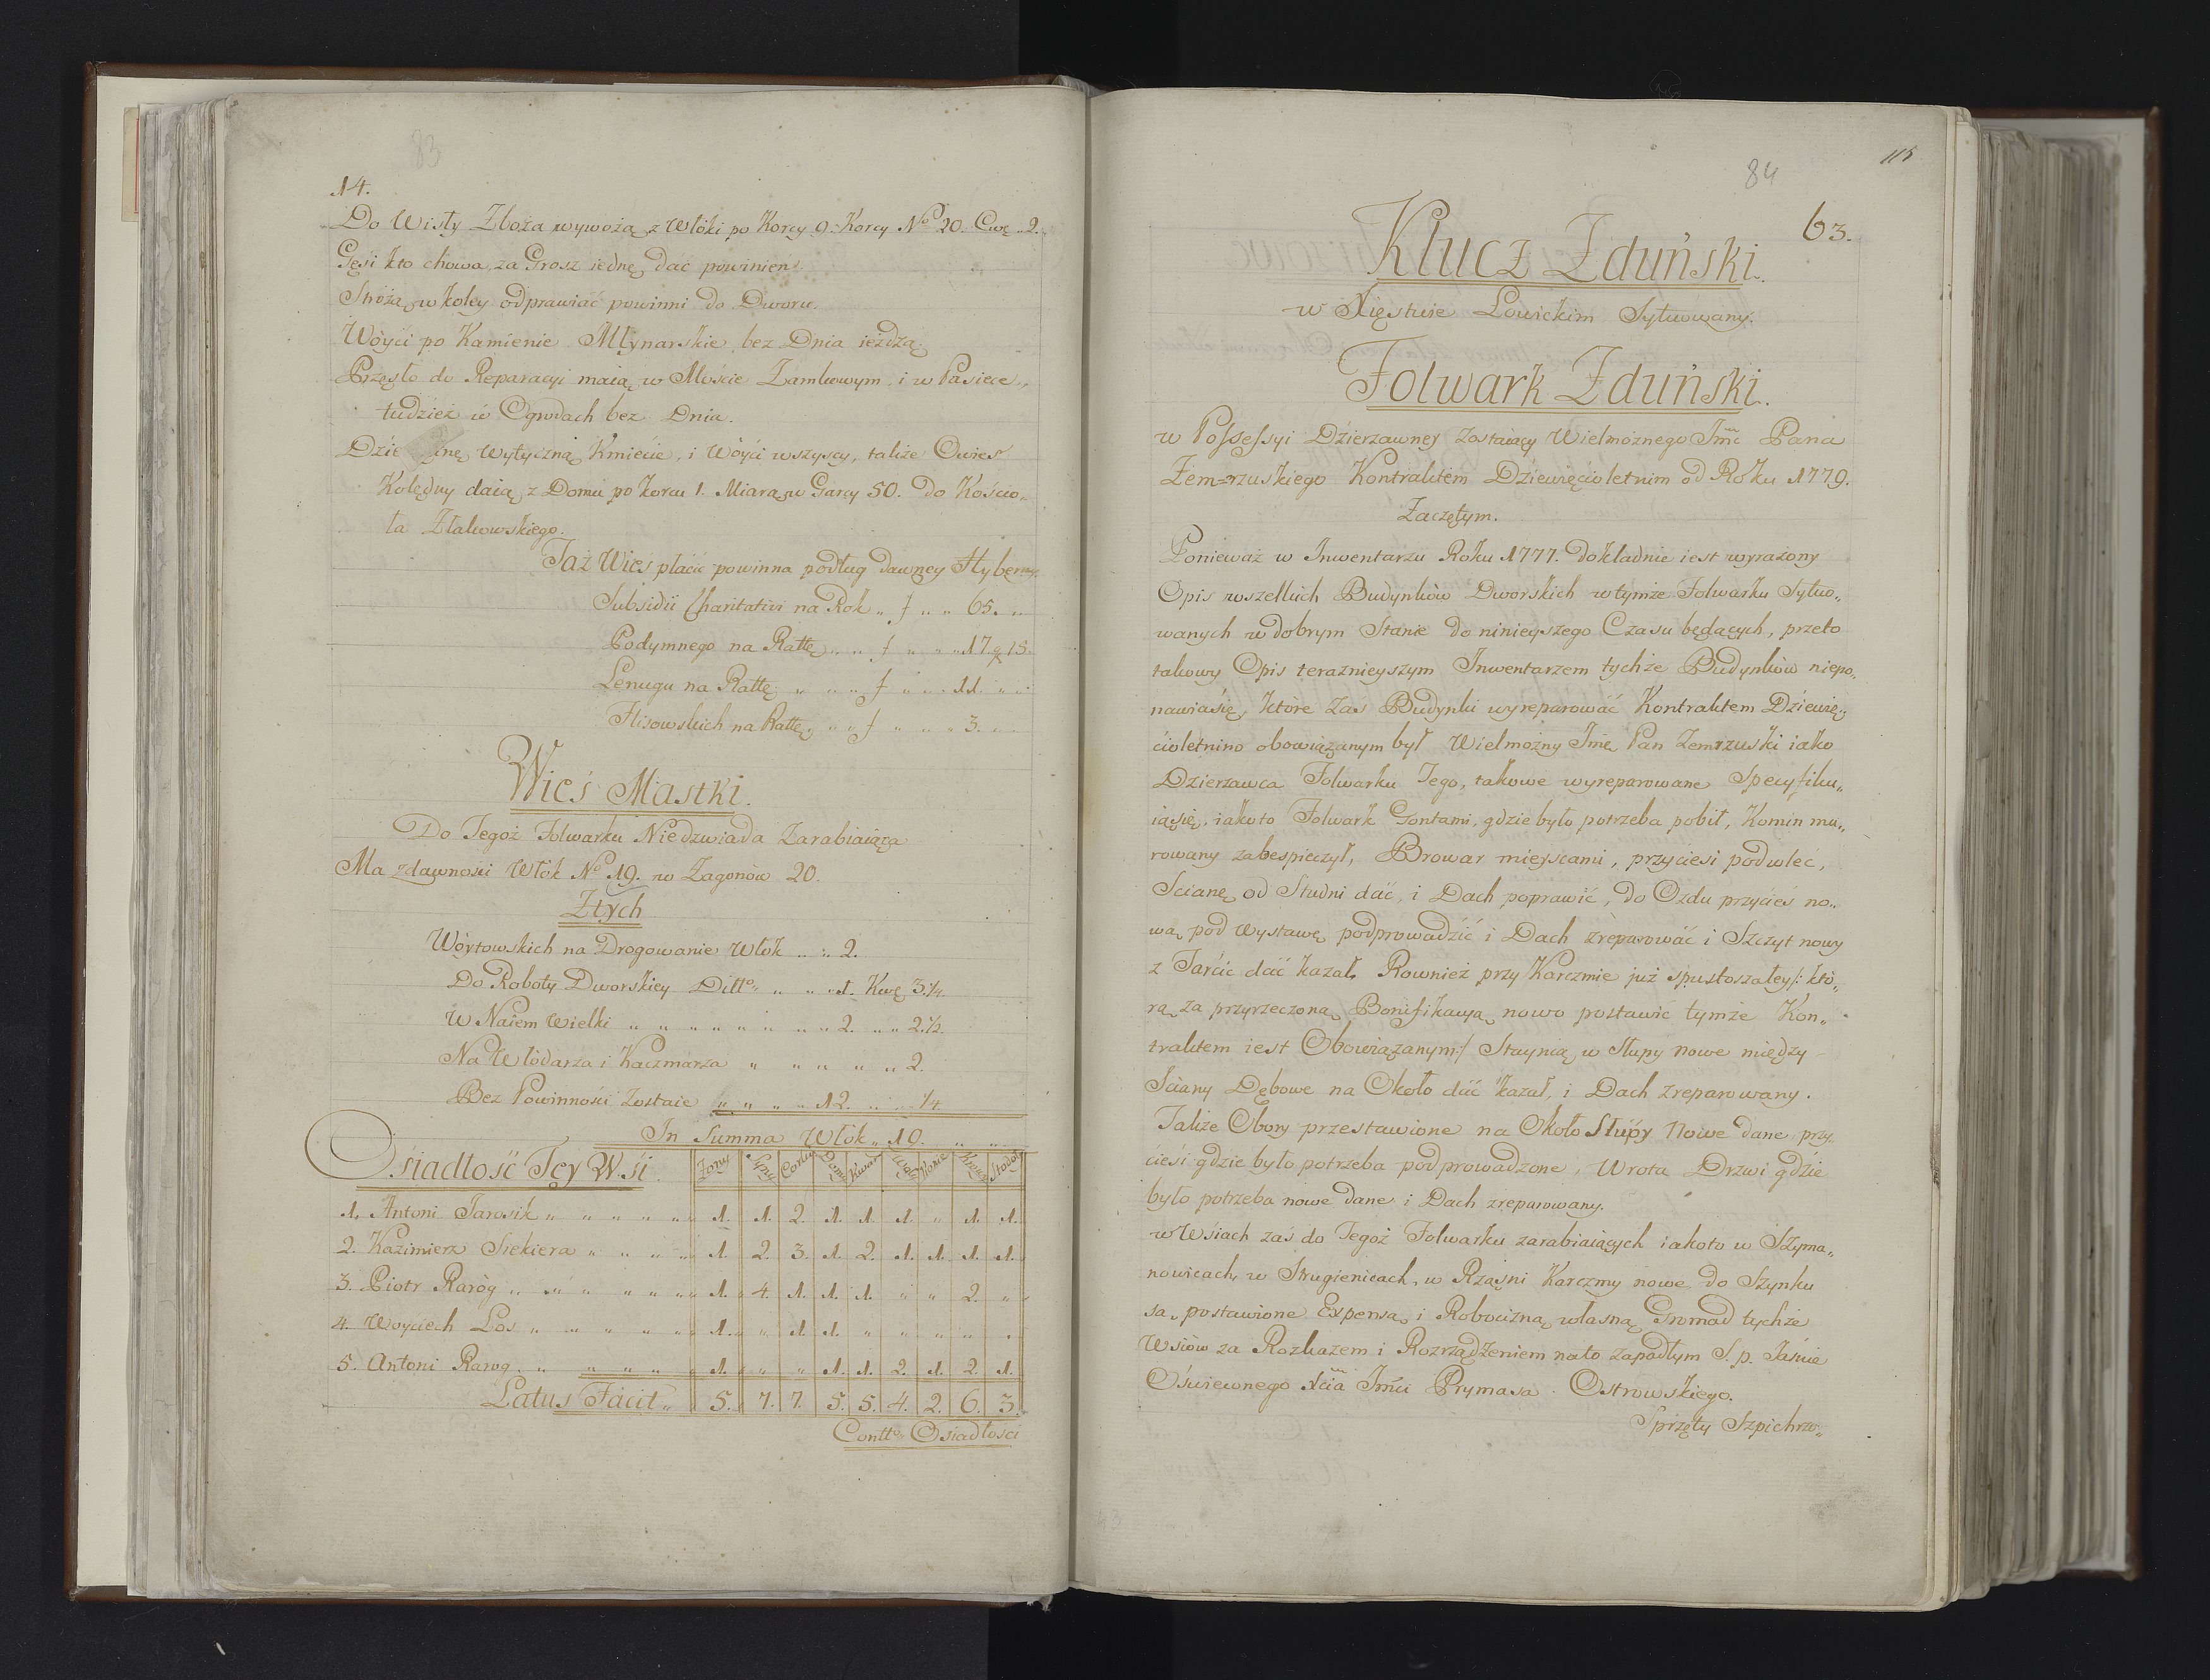 83
14.
Do Wisły Zboża wywożą z Włoki po Korcy 9. Korcy No 20. Cwę „ 2.
Gęsi kto chowa, za Grosz iednę dać powinien
Stróżą w koley odprawiać powinni do Dworu.
Wóyći po Kamienie Młynarskie bez Dnia ieżdżą.
Przęsło do Reparacyi maią w Mośćie Zamkowym, i w Pasiece,
tudzież w Ogrodach bez Dnia.
Dzie nę wytyczną Kmiećie, i Wóyći wszyscy, także Owies
Kolędny daią z Domu po korcu 1. Miarą w Garcy 50. do Kościo„
ła Złakowskiego.
Taż Wieś płacić powinna podług dawney Hyberny.
Subsidii Charitativi na Rok „ f „ „ 65. „
Podymnego na Rattę „ „ f „ „ „ 17. g 15.
Lenugu na Rattę „ „ „ f „ „ „ 11. „ „
Flisowskich na Rattę „ „ f „ „ „ 3. „ „
Wieś Mastki.
Do Tegoż Folwarku Niedzwiada Zarabiaiąca
Ma zdawnośći Włók No 19. w Zagonów 20.
Ztych
Wóytowskich na Drogowanie Włok „ „ 2.
Do Roboty Dworskiey Ditto „ „ „ 1. Kwę 3 1/4.
W Naiem Wielki „ „ „ „ „ „ „ „ 2. „ „ 2 1/2.
Na Włódarza i Kaczmarza „ „ „ „ „ 2.
Bez Powinnośći Zostaie „ „ „ „ 12. „ „ 1/4.
In Summa Włók „ 19. „ „
Osiadłość Tey Wśi. Żony Syny Corki Domy Woły Konie Krowy Stodoły
1. Antoni Jarosik „ „ „ „ „ „ 1. 1. 2. 1. 1. 1. „ 1. 1.
2. Kazimierz Siekiera „ „ „ „ „ 1. 2. 3. 1. 2. 1. 1. 1. 1.
3. Piotr Raróg „ „ „ „ „ „ „ 1. 4. 1. 1. 1. „ „ 2. „
4. Woyciech Łos „ „ „ „ „ „ 1. „ 1. 1. „ „ „ „ „
5. Antoni Rarog. „ „ „ „ „ 1. „ „ 1. 1. 2. 1. 2. 1.
Latus Facit „ 5. 7. 7. 5. 5. 4. 2. 6. 3.
Contto Osiadłości
115
84
63.
Klucz Zduński.
w Xięstwie Łowickim Sytuowany.
Folwark Zduński.
w Possessyi Dzierzawney zostaiący Wielmożnego Jmć Pana
Żem=rzuskiego Kontraktem Dziewięcioletnim od Roku 1779.
Zaczętym.
Ponieważ w Inwentarzu Roku 1777. dokładnie iest wyrażony
Opis wszelkich Budynków Dworskich w tymże Folwarku Sytuo„
wanych w dobrym Stanie do ninieyszego Czasu będących, przeto
takowy Opis teraznieyszym Inwentarzem tychże Budynków niepo„
nawia się, które zas Budynki wyreparować Kontraktem Dziewię„
ćioletnino obowiązanym był Wielmożny Jmć Pan Żemrzuski iako
Dzierzawca Folwarku Tego, takowe wyreparowane Specyfiku„
ią się, iako to Folwark Gontami, gdzie było potrzeba pobił, Komin mu„
rowany zabespieczył, Browar mieyscami, przyciesi podwlec,
Scianę od Studni dać, i Dach poprawić, do Ozdu przycieś no„
wą pod Wystawę podprowadzić i Dach zreparować i Szczyt nowy
z Tarćic dać kazał. Rownież przy Karczmie już spustoszałey /: któ„
rą za przyrzeczoną Bonifikacyą nowo postawić tymże Kon„
traktem iest Obowiązanym:/ Staynią w Słupy nowe między
Sciany Dębowe na Około dać kazał, i Dach zreparowany.
Także Obory przestawione na Około Słupy Nowe dane, przy„
ciesi gdzie było potrzeba podprowadzone, Wrota Drzwi gdzie
było potrzeba nowe dane i Dach zreparowany.
w Wśiach zaś do Tegoż Folwarku zarabiaiących iakoto w Szyma„
nowicach, w Strugienicach, w Rząsni Karczmy nowe do Szynku
są postawione Expensą i Robocizną własną Gromad tychże
Wsiów za Rozkazem i Rozrządzeniem na to zapadłym S. p. Jaśnie
Oświewnego Xcia Jmći Prymasa Ostrowskiego.
Sprzęty Szpichrzo„